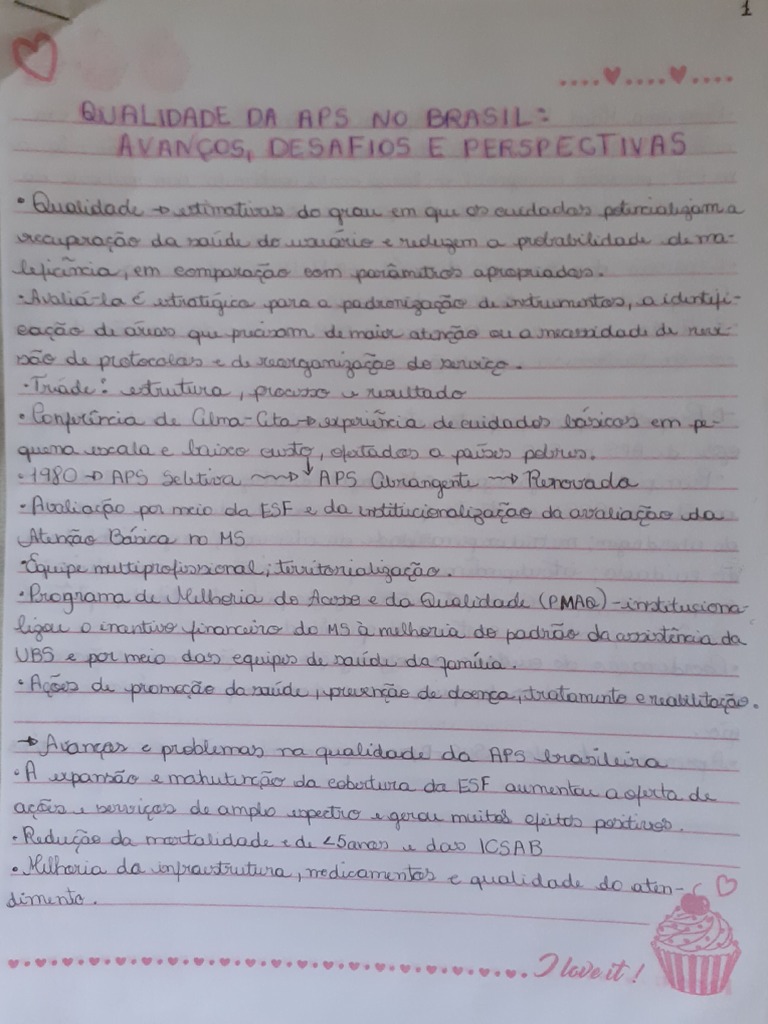 1
QUALIDADE DA APS NO BRASIL:
AVANÇOS, DESAFIOS E PERSPECTIVAS
• Qualidade → estimativas do grau em que os cuidados potencializam a
recuperação da saúde do usuário e reduzem a probabilidade de ma-
leficência, em comparação com parâmetros apropriados.
• Avaliá-la é estratégica para a padronização de instrumentos, a identifi-
cação de áreas que precisam de maior atenção ou a necessidade de revi-
são de protocolos e de reorganização do serviço.
• Tríade: estrutura, processo e resultado
• Conferência de Alma-Ata → experiência de cuidados básicos em pe-
quena escala e baixo custo, ofertados a países pobres.
• 1980 → APS Seletiva → APS Abrangente → Renovada
• Avaliação por meio da ESF e da institucionalização da avaliação da
Atenção Básica no MS
• Equipe multiprofissional; territorialização.
• Programa de Melhoria do Acesso e da Qualidade (PMAQ) - instituciona-
lizou o incentivo financeiro do MS à melhoria do padrão da assistência da
UBS e por meio das equipes de saúde da família.
• Ações de promoção da saúde, prevenção de doença, tratamento e reabilitação.
→ Avanços e problemas na qualidade da APS brasileira
• A expansão e manutenção da cobertura da ESF aumentou a oferta de
ações e serviços de amplo espectro e gerou muitos efeitos positivos.
• Redução da mortalidade e de <5anos e das ICSAB
• Melhoria da infraestrutura, medicamentos e qualidade do aten-
dimento.
I love it!